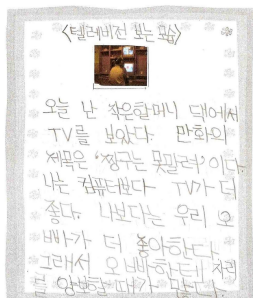 <텔레비전 보는 모습>
오늘 난 작은할머니 댁에서
TV를 보았다. 만화의
제목은 '짱구는 못말려'이다.
나는 컴퓨터보다 TV가 더
좋다. 나보다는 우리 오
빠가 더 좋아한다.
그래서 오빠한테 자리
를 양보할 때가 많다.